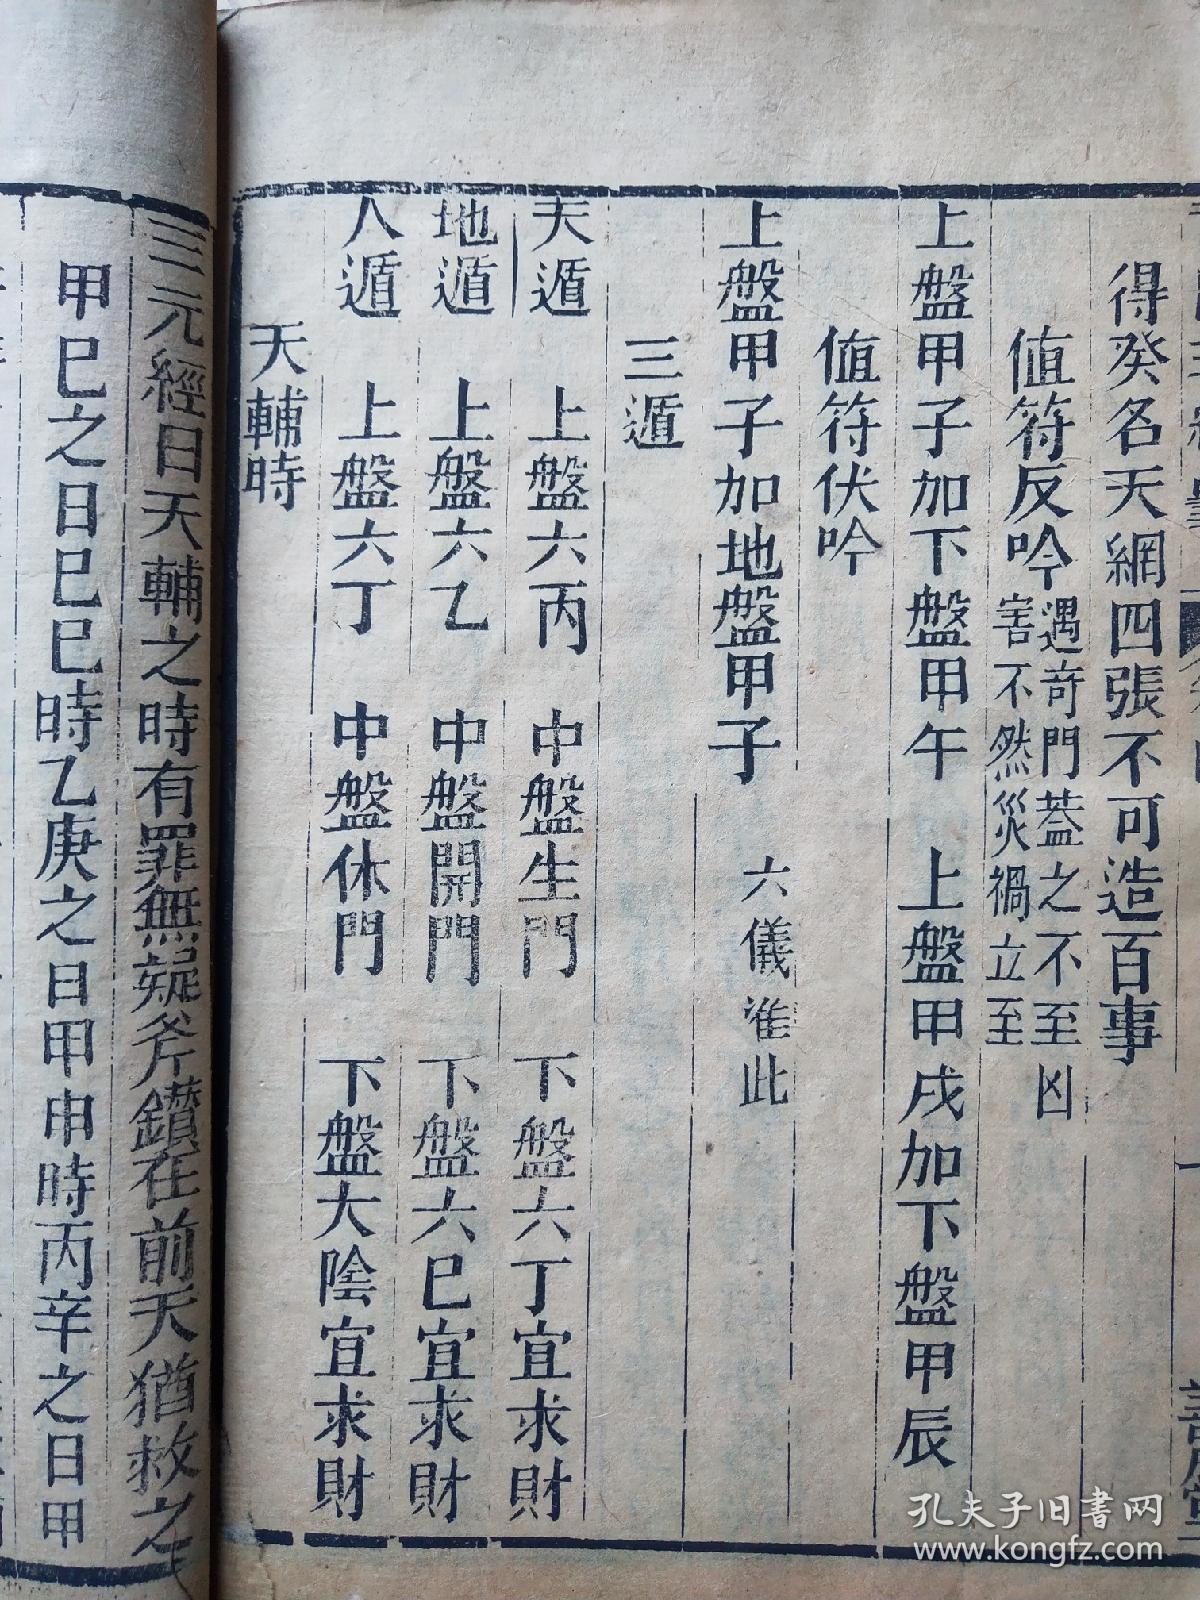 得癸名天網四張不可造百事
値符反吟遇竒門葢之不至凶
害不然災禍立至
上盤甲子加下盤甲午 上盤甲戌加下盤甲辰
値符伏吟
上盤甲子加地盤甲子 六儀準此
三遁
天遁 上盤六丙 中盤生門 下盤六丁宜求財
地遁 上盤六乙 中盤開門 下盤六巳宜求財
人遁 上盤六丁 中盤休門 下盤太陰宜求財
天輔時
三元經曰天輔之時有罪無疑斧鑕在前天猶救之
甲巳之日巳巳時乙庚之日甲申時丙辛之日甲
孔夫子旧书网
www.kongfz.com